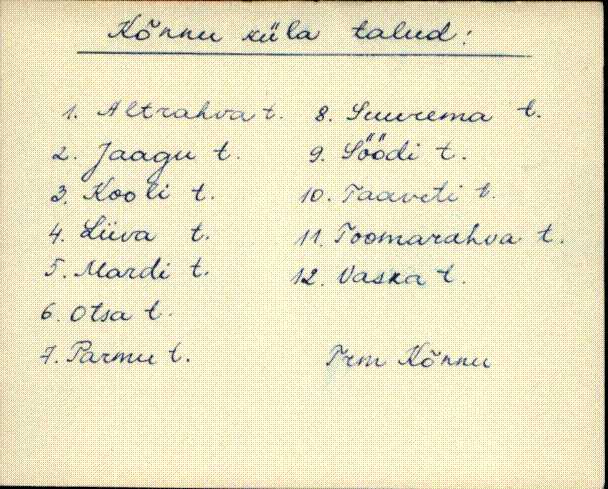 Kõnnu küla talud:
1. Altrahva t.
2. Jaagu t.
3. Kooli t.
4. Liiva t.
5. Mardi t.
6. Otsa t.
7. Parmu t.
8. Suurema t.
9. Söödi t.
10. Taaveti t.
11. Toomarahva t.
12. Vaska t.
Trm Kõnnu